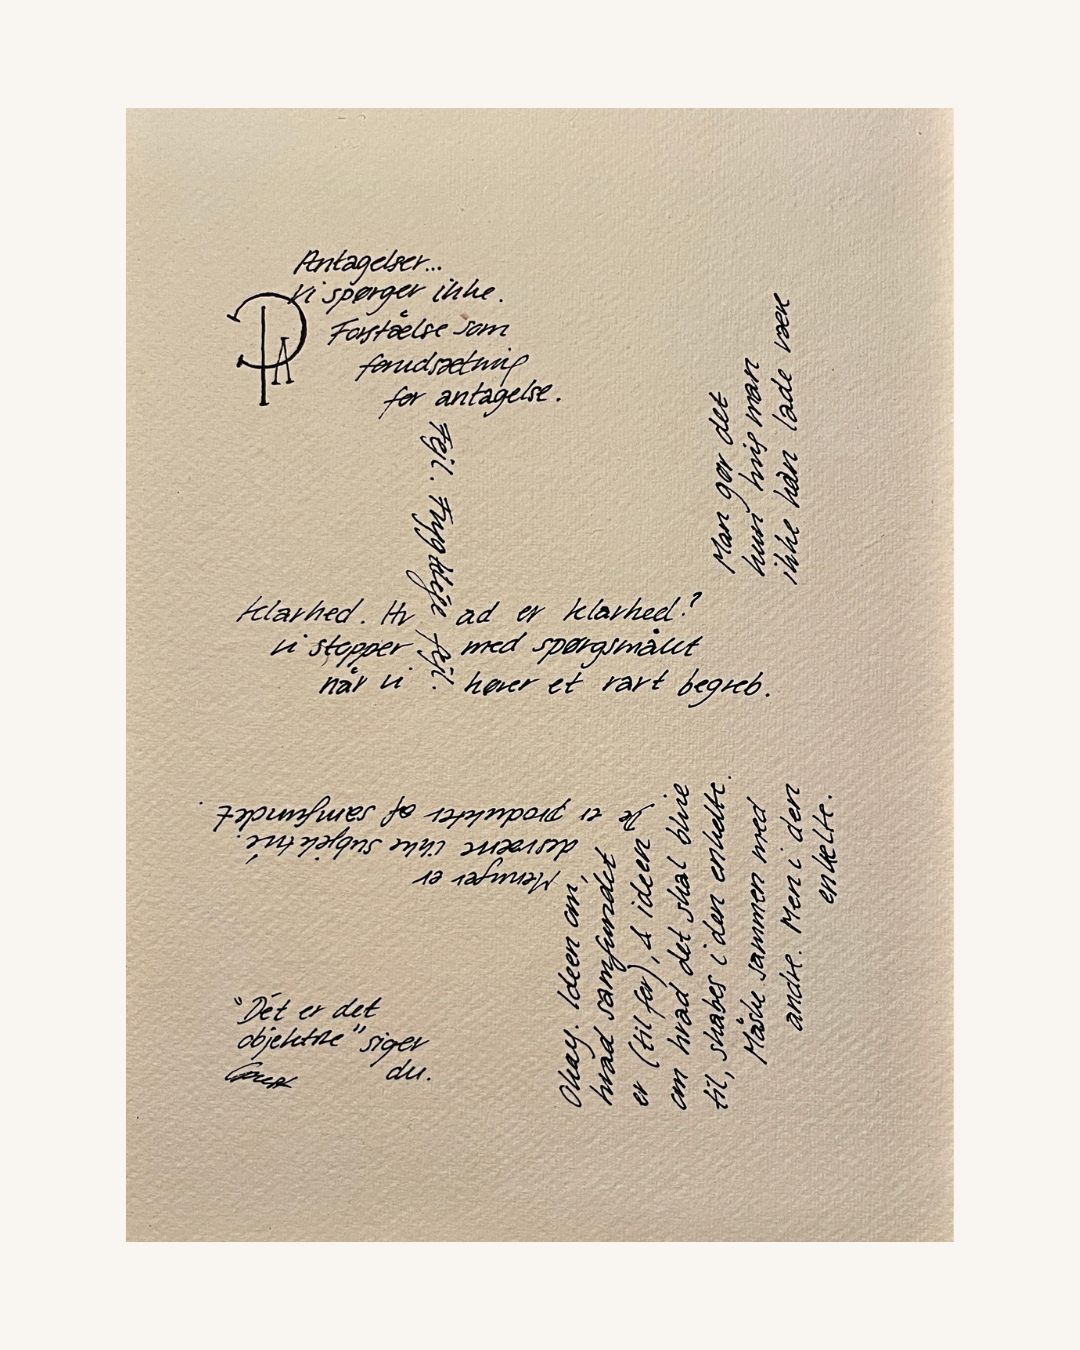 Antagelser...
Vi spørger ikke.
Forståelse som
forudsætning
for antagelse.
PA
Fejl. Frygtelige fejl.
Man gør det
kun hvis man
ikke kan lade være
Klarhed. Hvad er klarhed?
Vi stopper med spørgsmålet
når vi hører et rart begreb.
Meninger er
desværre ikke subjektive.
De er produkter af samfundet.
Okay. Ideen om,
hvad samfundet
er (til for), & ideen
om hvad det skal blive
til, skabes i den enkelte.
Måske sammen med
andre. Men i den
enkelte.
"Dét er det
objektive" siger
du.